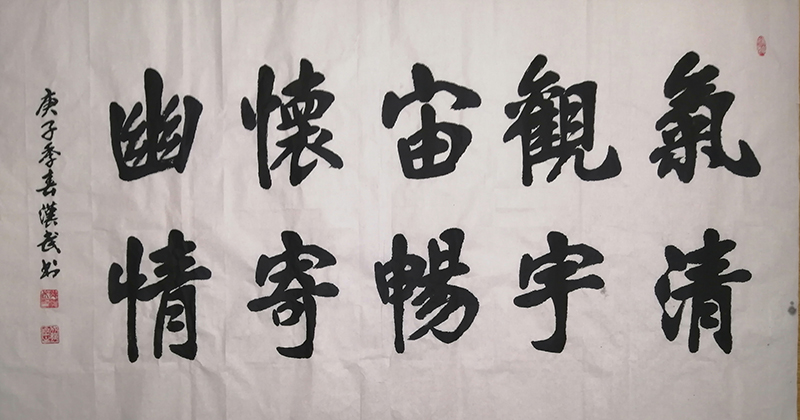 氣清
觀宇
宙暢
懷寄
幽情
庚子季春漢武书